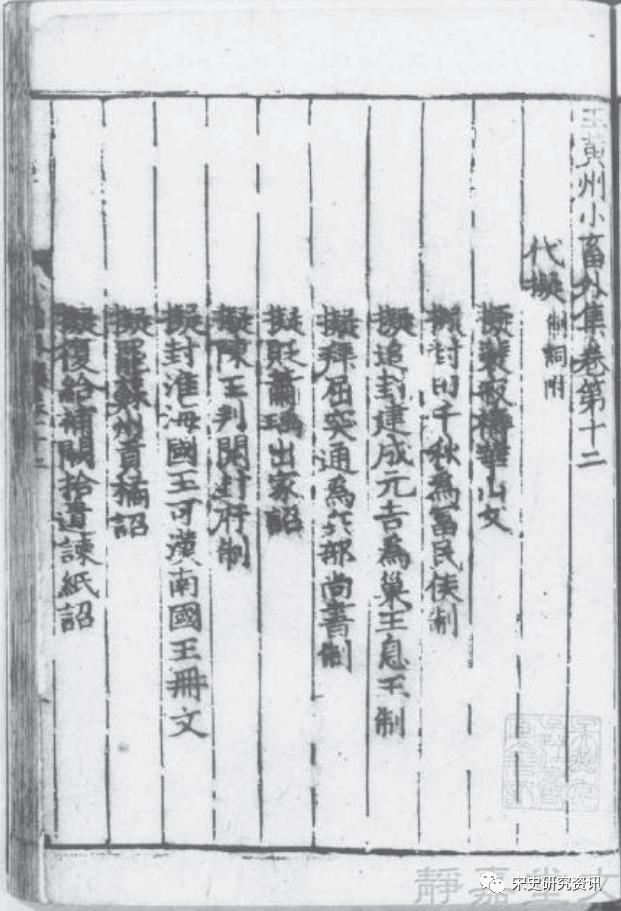 王黃州小畜外集卷第十二
代擬 制詞附
擬裴寂禱華山文
擬封田千秋爲富民侯制
擬追封建成元吉爲巢王息王制
擬拜屈突通爲兵部尚書制
擬貶蕭瑀出家詔
擬陳王判開封府制
擬封淮海國王可漢南國王冊文
擬罷蘇州貢橘詔
擬復給補闕拾遺諫紙詔
靜嘉堂文
宋史研究资讯